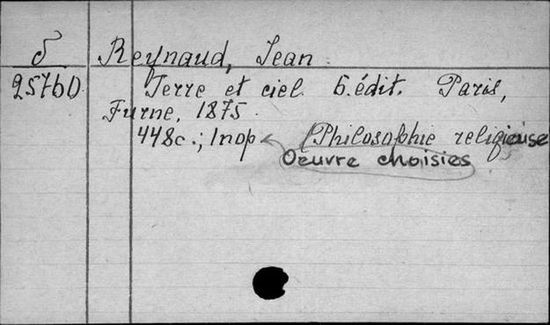 5 Reynaud, Jean
25760 Terre et ciel 6. édit. Paris,
Furne, 1875.
448c.; 1 пор (Philosophie religieuse
Oeuvre choisies